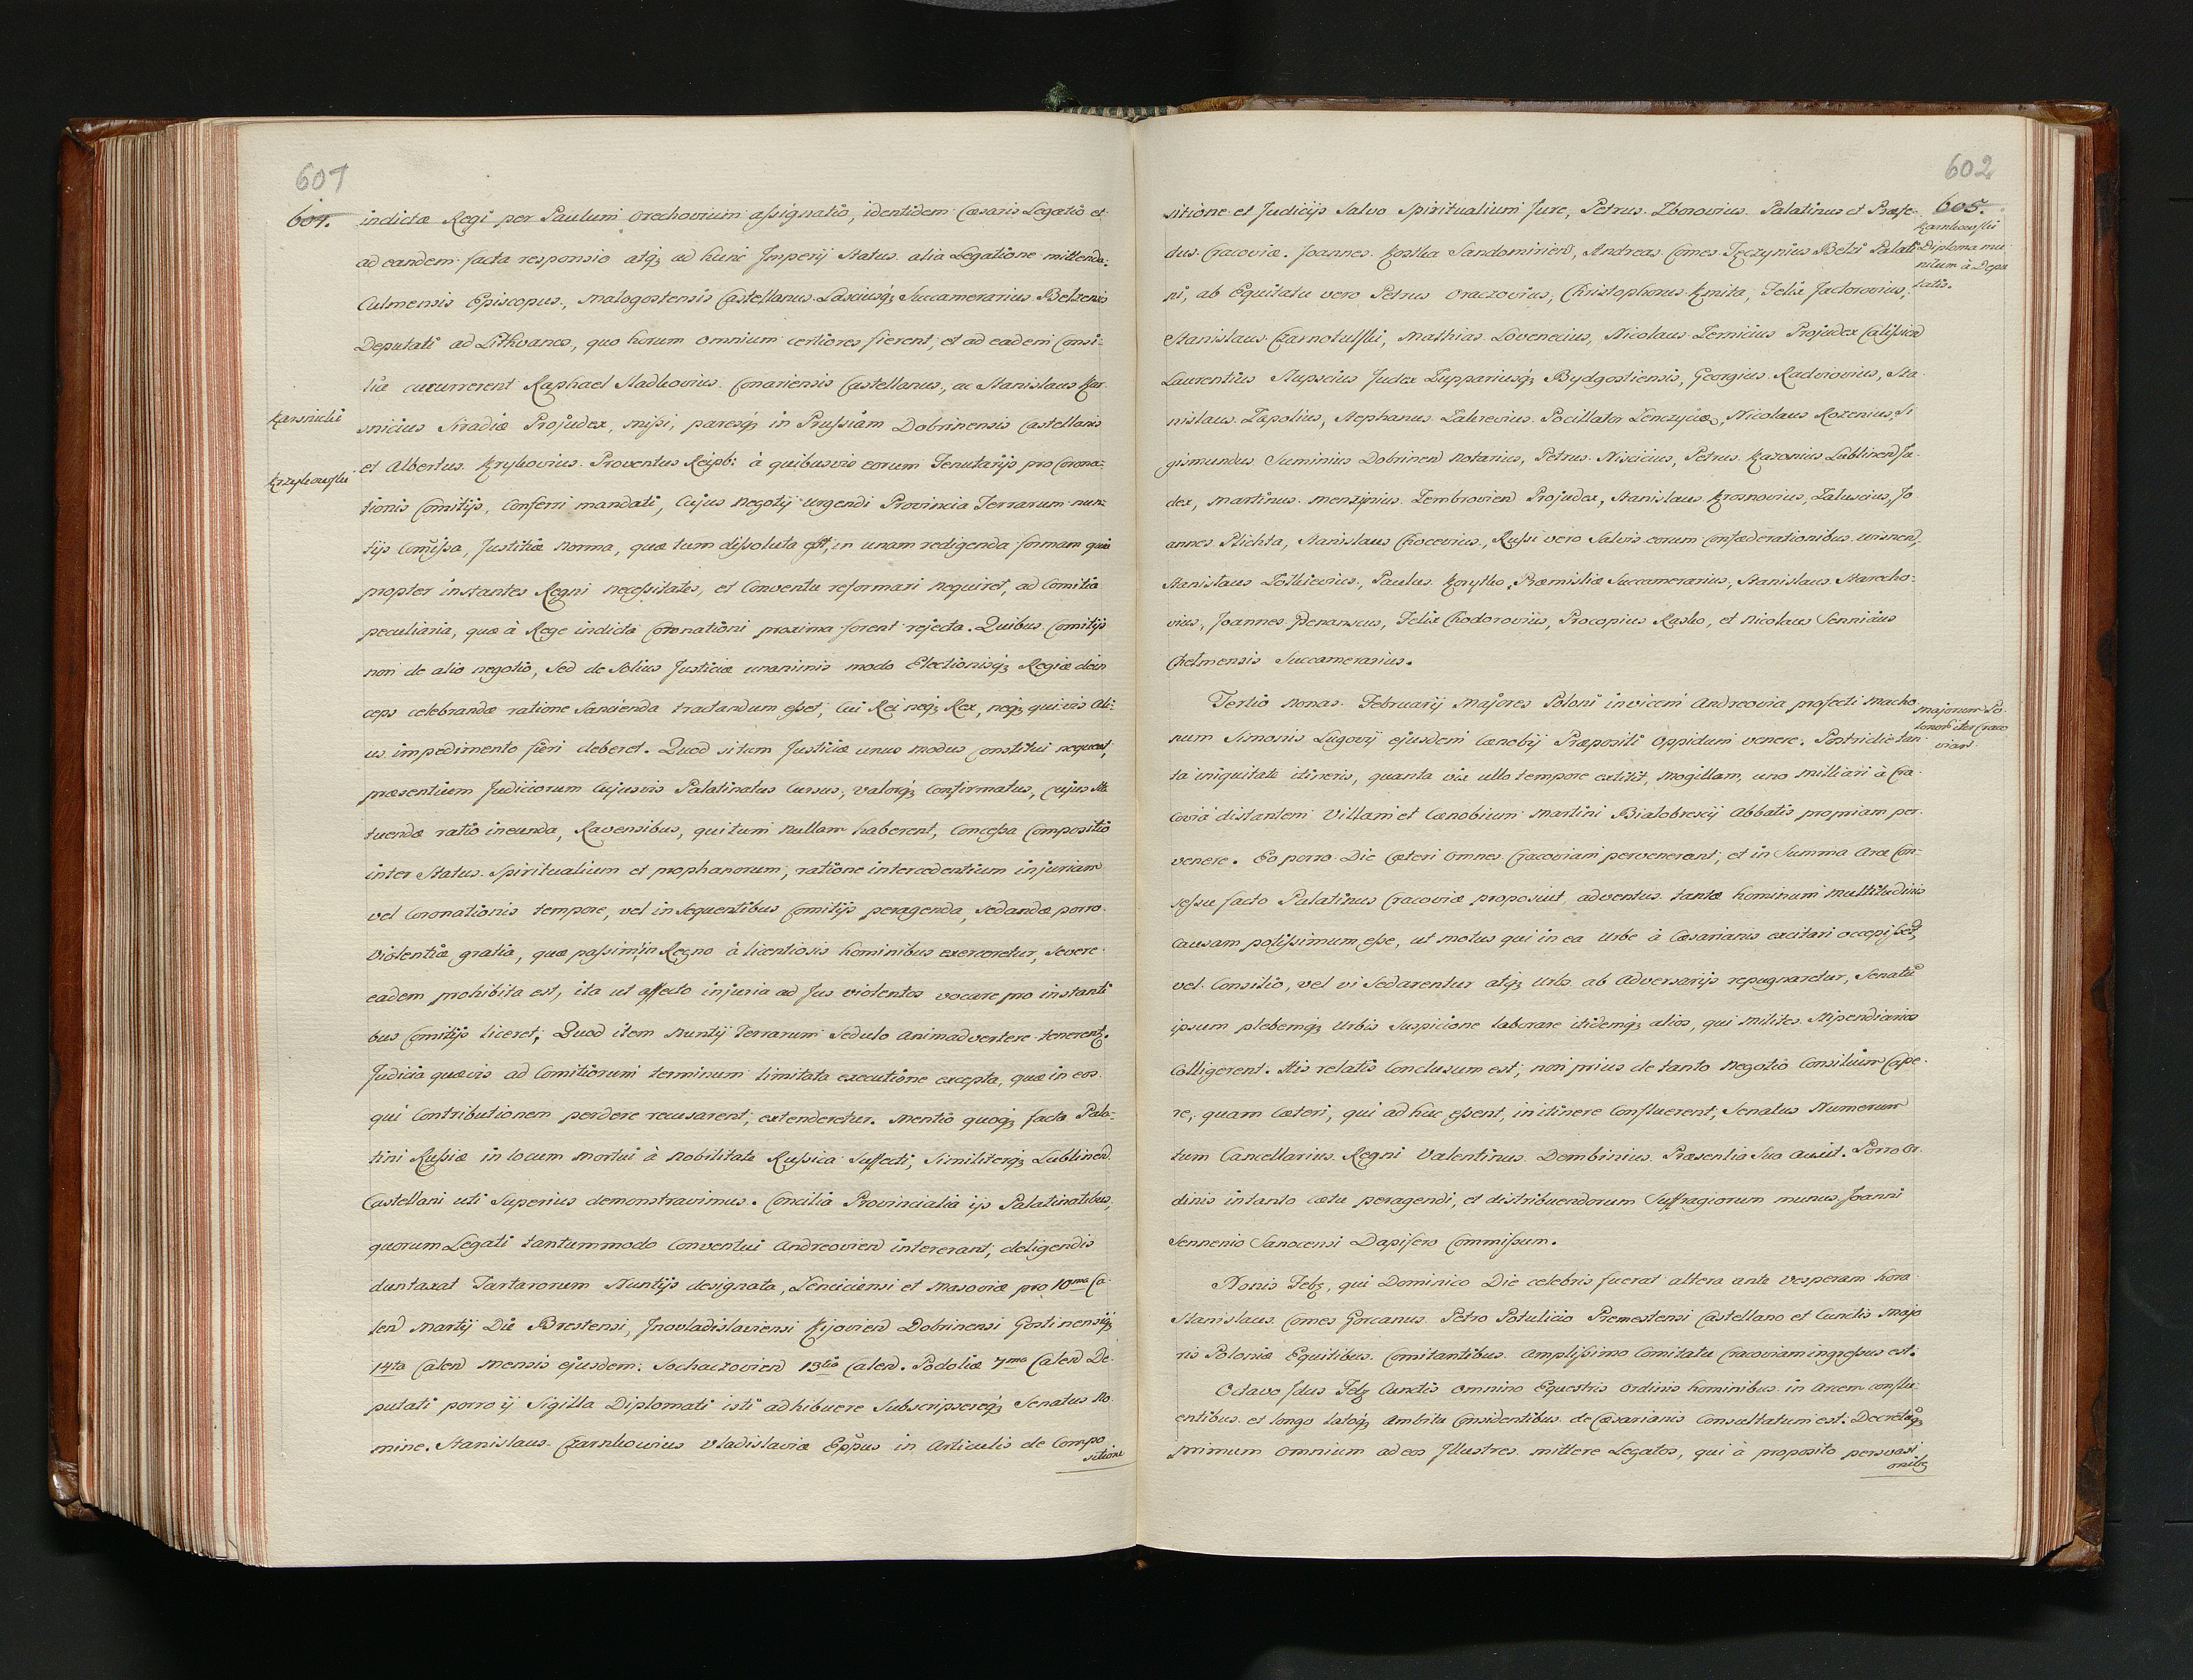 601
604.
indictæ Regi per Paulum Orechovium assignatio, identidem Cæsaris Legatio et
ad eandem facta responsio atq; ad hunc Imperij Status alia Legatione mittenda:
Culmensis Episcopus, Malogostensis Castellanus Lasciusq; Succamerarius Belzensis
Deputati ad Lithvanos, quo horum omnium certiores fierent, et ad eadem Consi-
lia cucurrerent Raphael Sladkovius Conariensis Castellanus, ac Stanislaus Kar
Karsnicki
snicius Siradiæ Projudex, missi, paresq; in Prussiam Dobrinensis Castellanis
Krzykowski
et Albertus Krykovius Proventus Reipb: à quibusvis eorum Tenutarijs pro Corona-
tionis Comitijs, Conferri mandati, Cujus Negotij urgendi Provincia Terrarum nun-
tijs Com̃issa, Justitiæ Norma, quæ tum dissoluta est, in unam redigenda formam quia
propter instantes Regni necessitates, et Conventu reformari nequiret, ad Comitia
peculiaria, quæ à Rege indicta Coronationi proxima forent rejecta. Quibus Comitijs
non de alio negotio, sed de Solius Justiciæ unanimis modo Electionisq; Regiæ dein
ceps celebrandæ ratione Sancienda tractandum esset, Cui Rei neq; Rex, neq; quivis Ali-
us impedimento fieri deberet. Quod si tum Justiciæ unus modus constitui nequeat,
præsentium Judiciorum Cujusvis Palatinatus Cursus, valorq; Confirmatus, Cujus Sta
tuendæ ratio ineunda, Ravensibus, qui tum nullam haberent, Concessa Compositio
inter Status Spiritualium et prophanorum, ratione intercedentium injuriam
vel Coronationis tempore, vel in Sequentibus Comitijs peragenda, Sedandæ porro
Violentiæ gratia, quæ passim in Regno à licentiosis hominibus exerceretur, Severe
eadem prohibita est, ita ut affecto injuria ad Jus violentos vocare pro instanti
bus Comitijs liceret; Quod item Nuntij Terrarum Sedulo animadvertere tenerent.
Judicia quævis ad Comitiorum terminum limitata executione excepta, quæ in eos
qui Contributionem perdere recusarent, extenderetur. Mentio quoq; facta Pala-
tini Russiæ in locum mortui à Nobilitate Russica Suffecti, Similiterq; Lublinen
Castellani uti Superius demonstravimus. Concilia Provincialia ijs Palatinatibus,
quorum Legati tantummodo Conventui Andreovien intererant, deligendis
duntaxat Tartarorum Nuntijs designata, Lenciciensi et Masoviæ pro 10ma Ca-
len Martij Die Brestensi, Inovladislaviensi Kijovien Dobrinensi Gostinensiq;
14ta Calen mensis ejusdem: Sochaczovien 13tia Calen. Podoliæ 7ma Calen De-
putati porro ij Sigilla Diplomati isti adhibuere Subscripsereq; Senatus No
mine. Stanislaus Czarnkovius Vladislaviæ Epp̃us in Articulis de Compo
sitione
602
605.
sitione et Judicijs Salvo Spiritualium Jure, Petrus Zborovius Palatinus et Præfe-
Karnkowski
Diploma mu
nitum à Depu
tatis.
ctus Cracoviæ. Joannes Kostka Sandomirien, Andreas Comes Tęczynius Belzi Palati
ni, ab Equitatu vero Petrus Oraczovius, Christophorus Kmita, Felix Jactorovius,
Stanislaus Czarnotulski, Mathias Lovenecius, Nicolaus Zernicius Projudex Calissien
Laurentius Slupscius Judex Zuppariusq; Bydgostiensis, Georgius Rudvrovius, Sta
nislaus Zapolius, Stephanus Zakrevius Pocillator Lenczyciæ, Nicolaus Rozenius, Si
gismundus Suminius Dobrinen Notarius, Petrus Niscicius, Petrus Kazonius Lublinen Ju-
dex, Martinus Menzynius Zembrovien Projudex, Stanislaus Krasnovius, Zaluscius, Jo
annes Plichta, Stanislaus Chocevius, Russi vero Salvis eorum Confœderationibus Wisnen,
Stanislaus Zolkievius, Paulus Korytko, Præmisliæ Succamerarius, Stanislaus Starecho-
vius, Joannes Penanscus, Felix Chodorovius, Procopius Rasko, et Nicolaus Senniaus
Chelmensis Succamerarius.
Tertio Nonas Februarij Majores Poloni invicem Andreovia profecti Macho
Majorum Po
lonor̃ iter Craco
viam.
num Simonis Lugovij ejusdem Cænobij Præpositi Oppidum venere. Postridie tan-
ta iniquitate itineris, quanta vix ullo tempore extitit, Mogillam, uno milliari à Cra-
coviâ distantem Villam et Cænobium Martini Bialobrescij Abbatis propriam per-
venere. Eo porro Die Cæteri omnes Cracoviam pervenerant, et in Summa Aræ Con-
sessu facto Palatinus Cracoviæ proposuit, adventus tantæ hominum multitudinis
Causam potissimum esse, ut motus qui in ea Urbe à Cæsarianis excitari occepisset,
vel Consilio, vel vi Sedarentur atq; Urbs ab Adversarijs repugnaretur, Senatũ
ipsum plebemq; Urbis Suspicione laborare itidemq; alios, qui Milites Stipendiarios
Colligerent. His relatis Conclusum est, non prius de tanto Negotio Consilium Cape-
re, quam Cæteri, qui adhuc essent, in itinere Confluerent, Senatus Numerum
tum Cancellarius Regni Valentinus Dembinius Præsentia Sua auxit. Porro Or
dinis in tanto cætu peragendi, et distribuendorum Suffragiorum munus Joanni
Sennenio Sanocensi Dapifero Commissum.
Nonis Feb;, qui Dominico Die celebris fuerat altera ante Vesperam hora
Stanislaus Comes Gorcanus Petro Potulicio Premestensi Castellano et Cunctis Majo
ris Poloniæ Equitibus Comitantibus amplissimo Comitatu Cracoviam ingressus est.
Octavo Idus Feb; Cunctis omnino Equestris Ordinis hominibus in Arcem conflu-
entibus et longo latoq; Ambitu Considentibus de Cæsarianis Consultatum est. Decretũq;
primum omnium ad eos Illustres mittere Legatos, qui à proposito persvasi
onib;